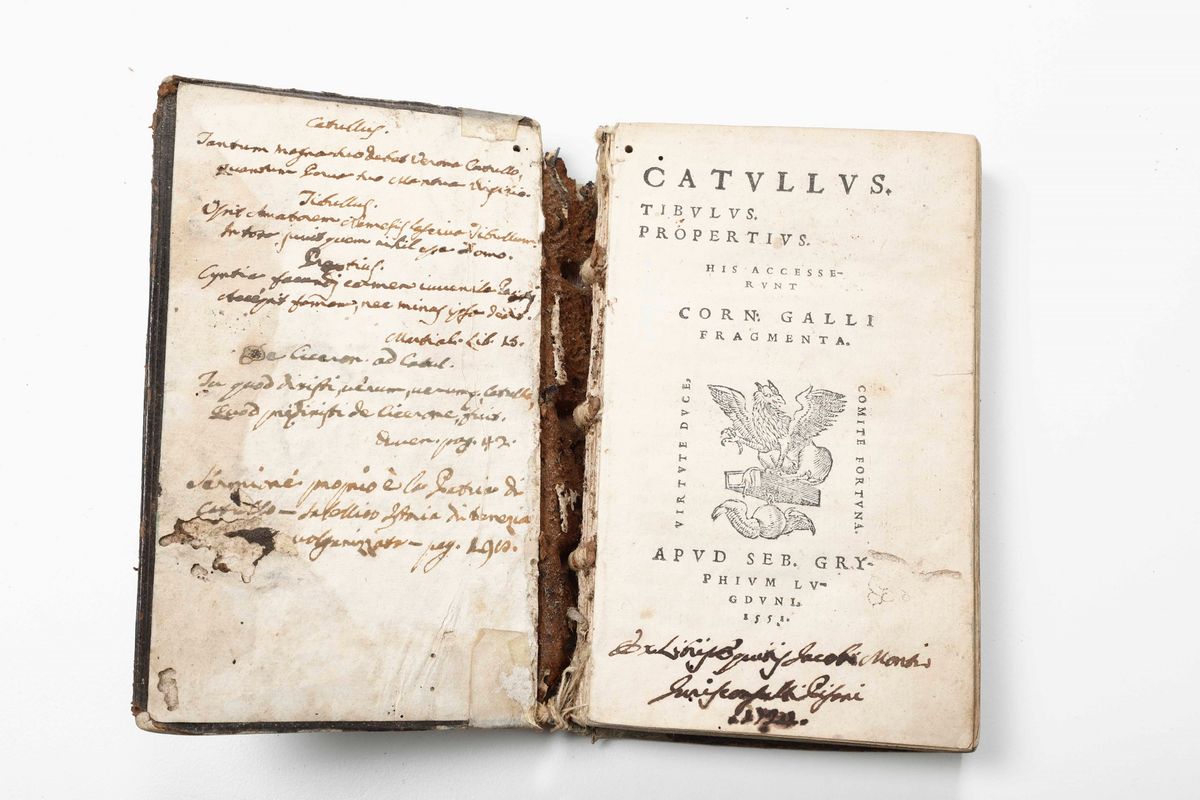 Catullus.
Tantum magna suo debet Verona Catullo,
quantum parua suo Mantua Virgilio.
Tibullus.
Ussit Amatorem Nemesis lasciua Tibullum
In tota iuuit quem nihil esse domo.
Cyntia facundi carmen iuuenile
Accepit famam, nec minus ipsa dedit.
Martial. Lib. 15.
De Ciceron. ad Catul.
Tu quod dixisti, uerum, uerum, Catulle,
Quod de Cicerone,
pag. 42.
proprio è la Patria di
Catullo – Sabellico Istoria di Venezia
uolgarizzata – pag.
CATVLLVS.
TIBVLVS.
PROPERTIVS.
HIS ACCESSE-
RVNT
CORN. GALLI
FRAGMENTA.
VIRTVTE DVCE,
COMITE FORTVNA.
APVD SEB. GRY-
PHIVM LV-
GDVNI,
1551.
Ex Libris Equitis Jacobi Montii
Jurisconsulti Pisani